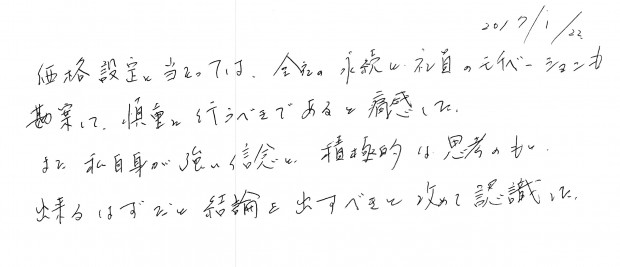 2017/1/22
価格設定に当たっては、会社の永続と社員のモチベーションも
勘案して、慎重に行うべきであると痛感した。
また私自身が強い信念と、積極的な思考のもと、
出来るはずだと結論を出すべきと改めて認識した。